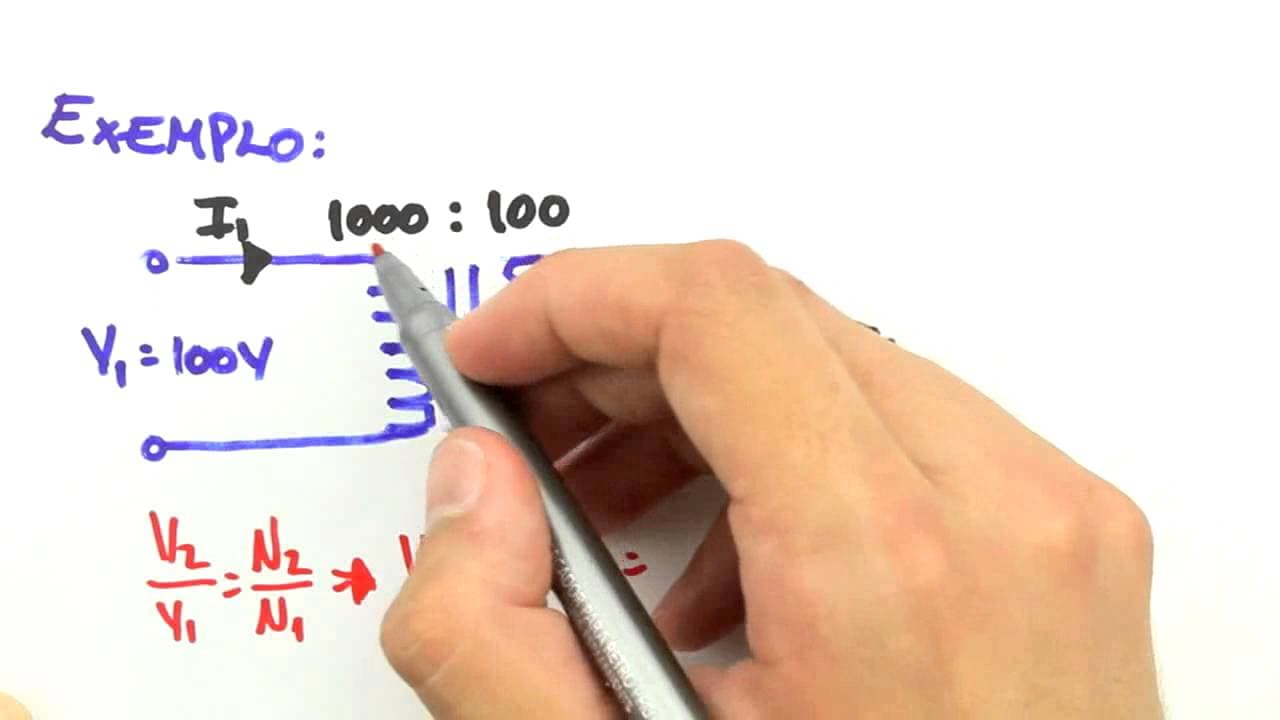 EXEMPLO:
I₁ 1000 : 100
V₁ = 100V
V₂/V₁ = N₂/N₁ → V =